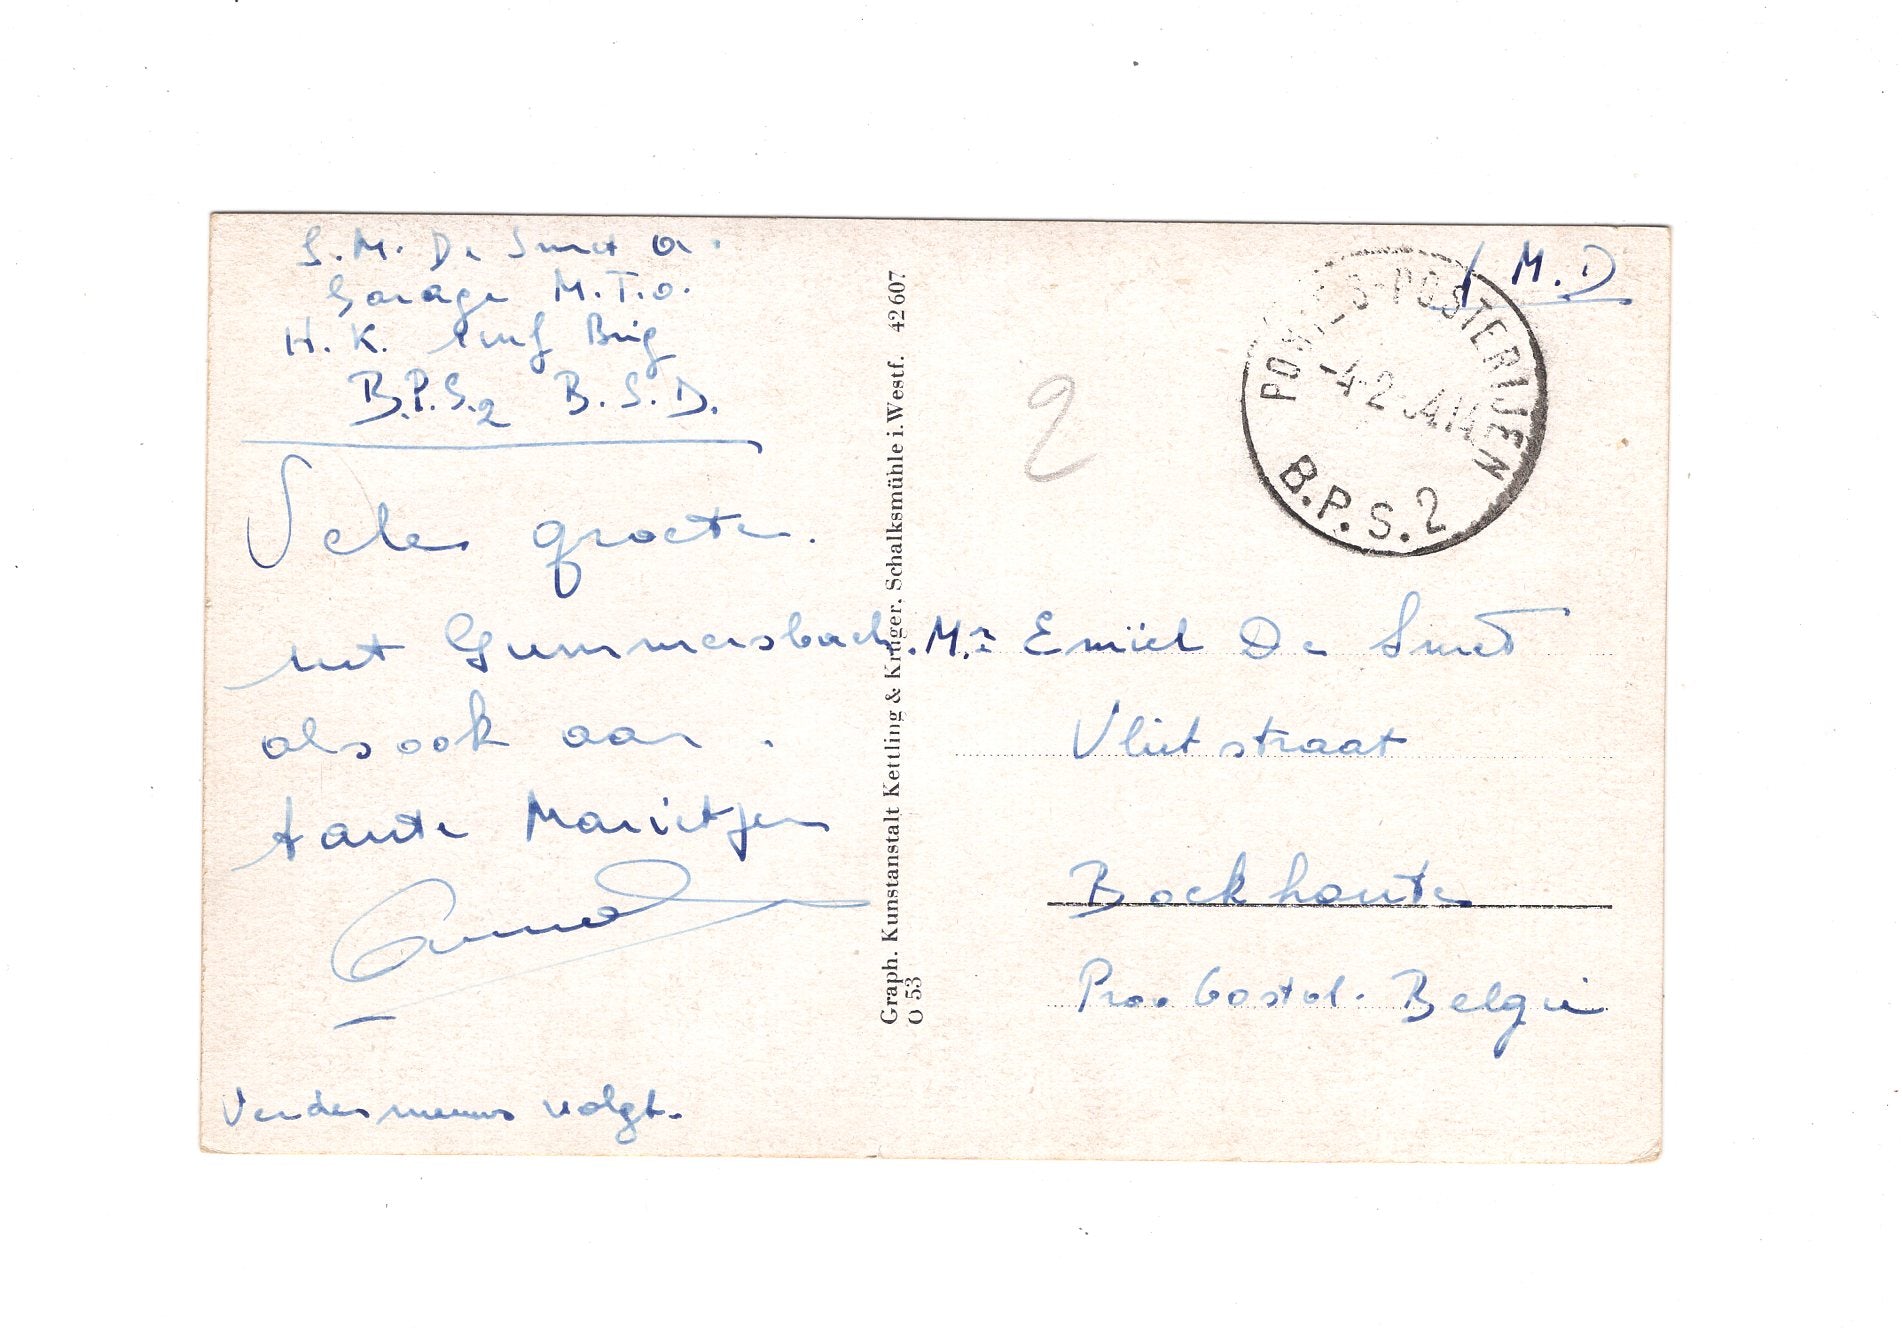 S.M. De Smet A.
Garage M.T.O.
H.K. Inf Brig
B.P.S.2 B.S.D.
Vele groeten.
uit Gummersbach.
alsook aan.
tante Marietjen
Verder nieuws volgt.
Graph. Kunstanstalt Kettling & Krüger, Schalksmühle i. Westf. 42607
O 53
2
M.D
POSTES-POSTERIJEN
-4-2-5414
B.P.S.2
Mr Emiel De Smet
Vlietstraat
Boekhoute
Prov Oostvl. België